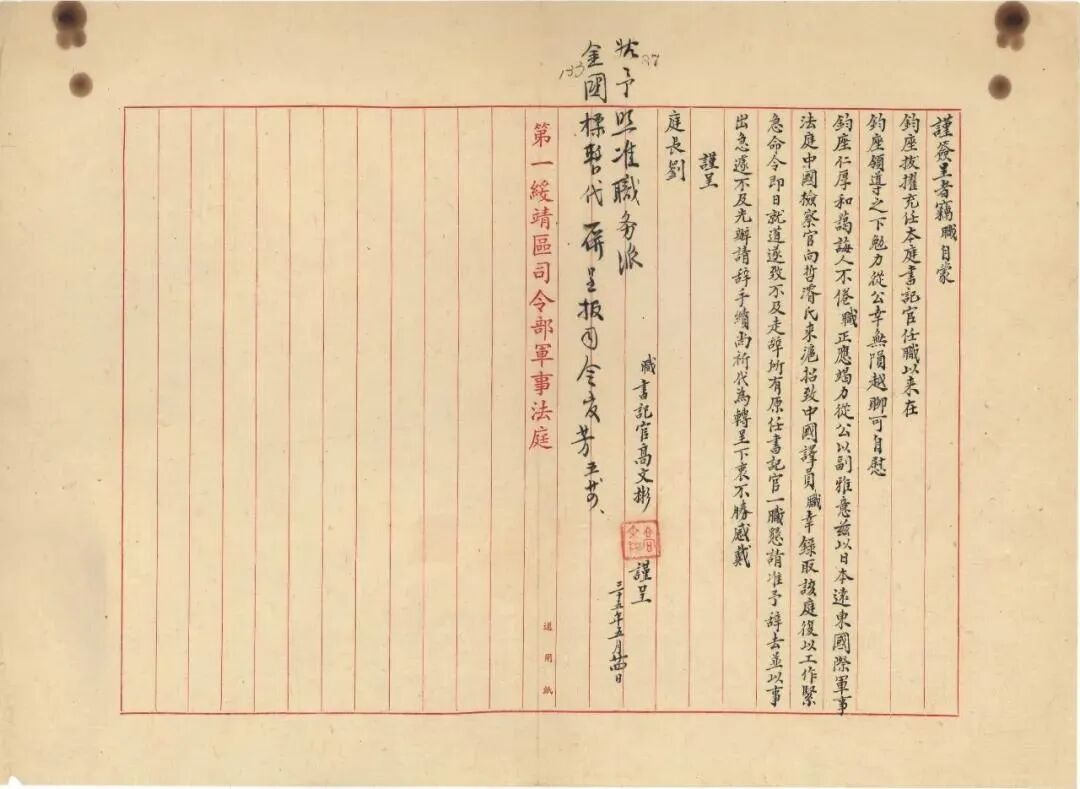 謹簽呈者竊職自蒙
鈞座拔擢充任本庭書記官任職以来在
鈞座領導之下勉力從公幸無隕越聊可自慰
鈞座仁厚和藹誨人不倦職正應竭力從公以副雅意茲以日本遠東國際軍事
法庭中國檢察官向哲濬氏來滬招致中國譯員職幸錄取該庭復以工作緊
急命令即日就道遂致不及走辞所有原任書記官一職懇請准予辞去並以事
出急遽不及先辦請辞手續尚祈代為轉呈下衷不勝感戴
謹呈
庭長劉
職書記官高文彬
謹呈
三十五年五月廿四日
27
133
准職務派
金國標暫代併呈报司令
第一綏靖區司令部軍事法庭
通用紙